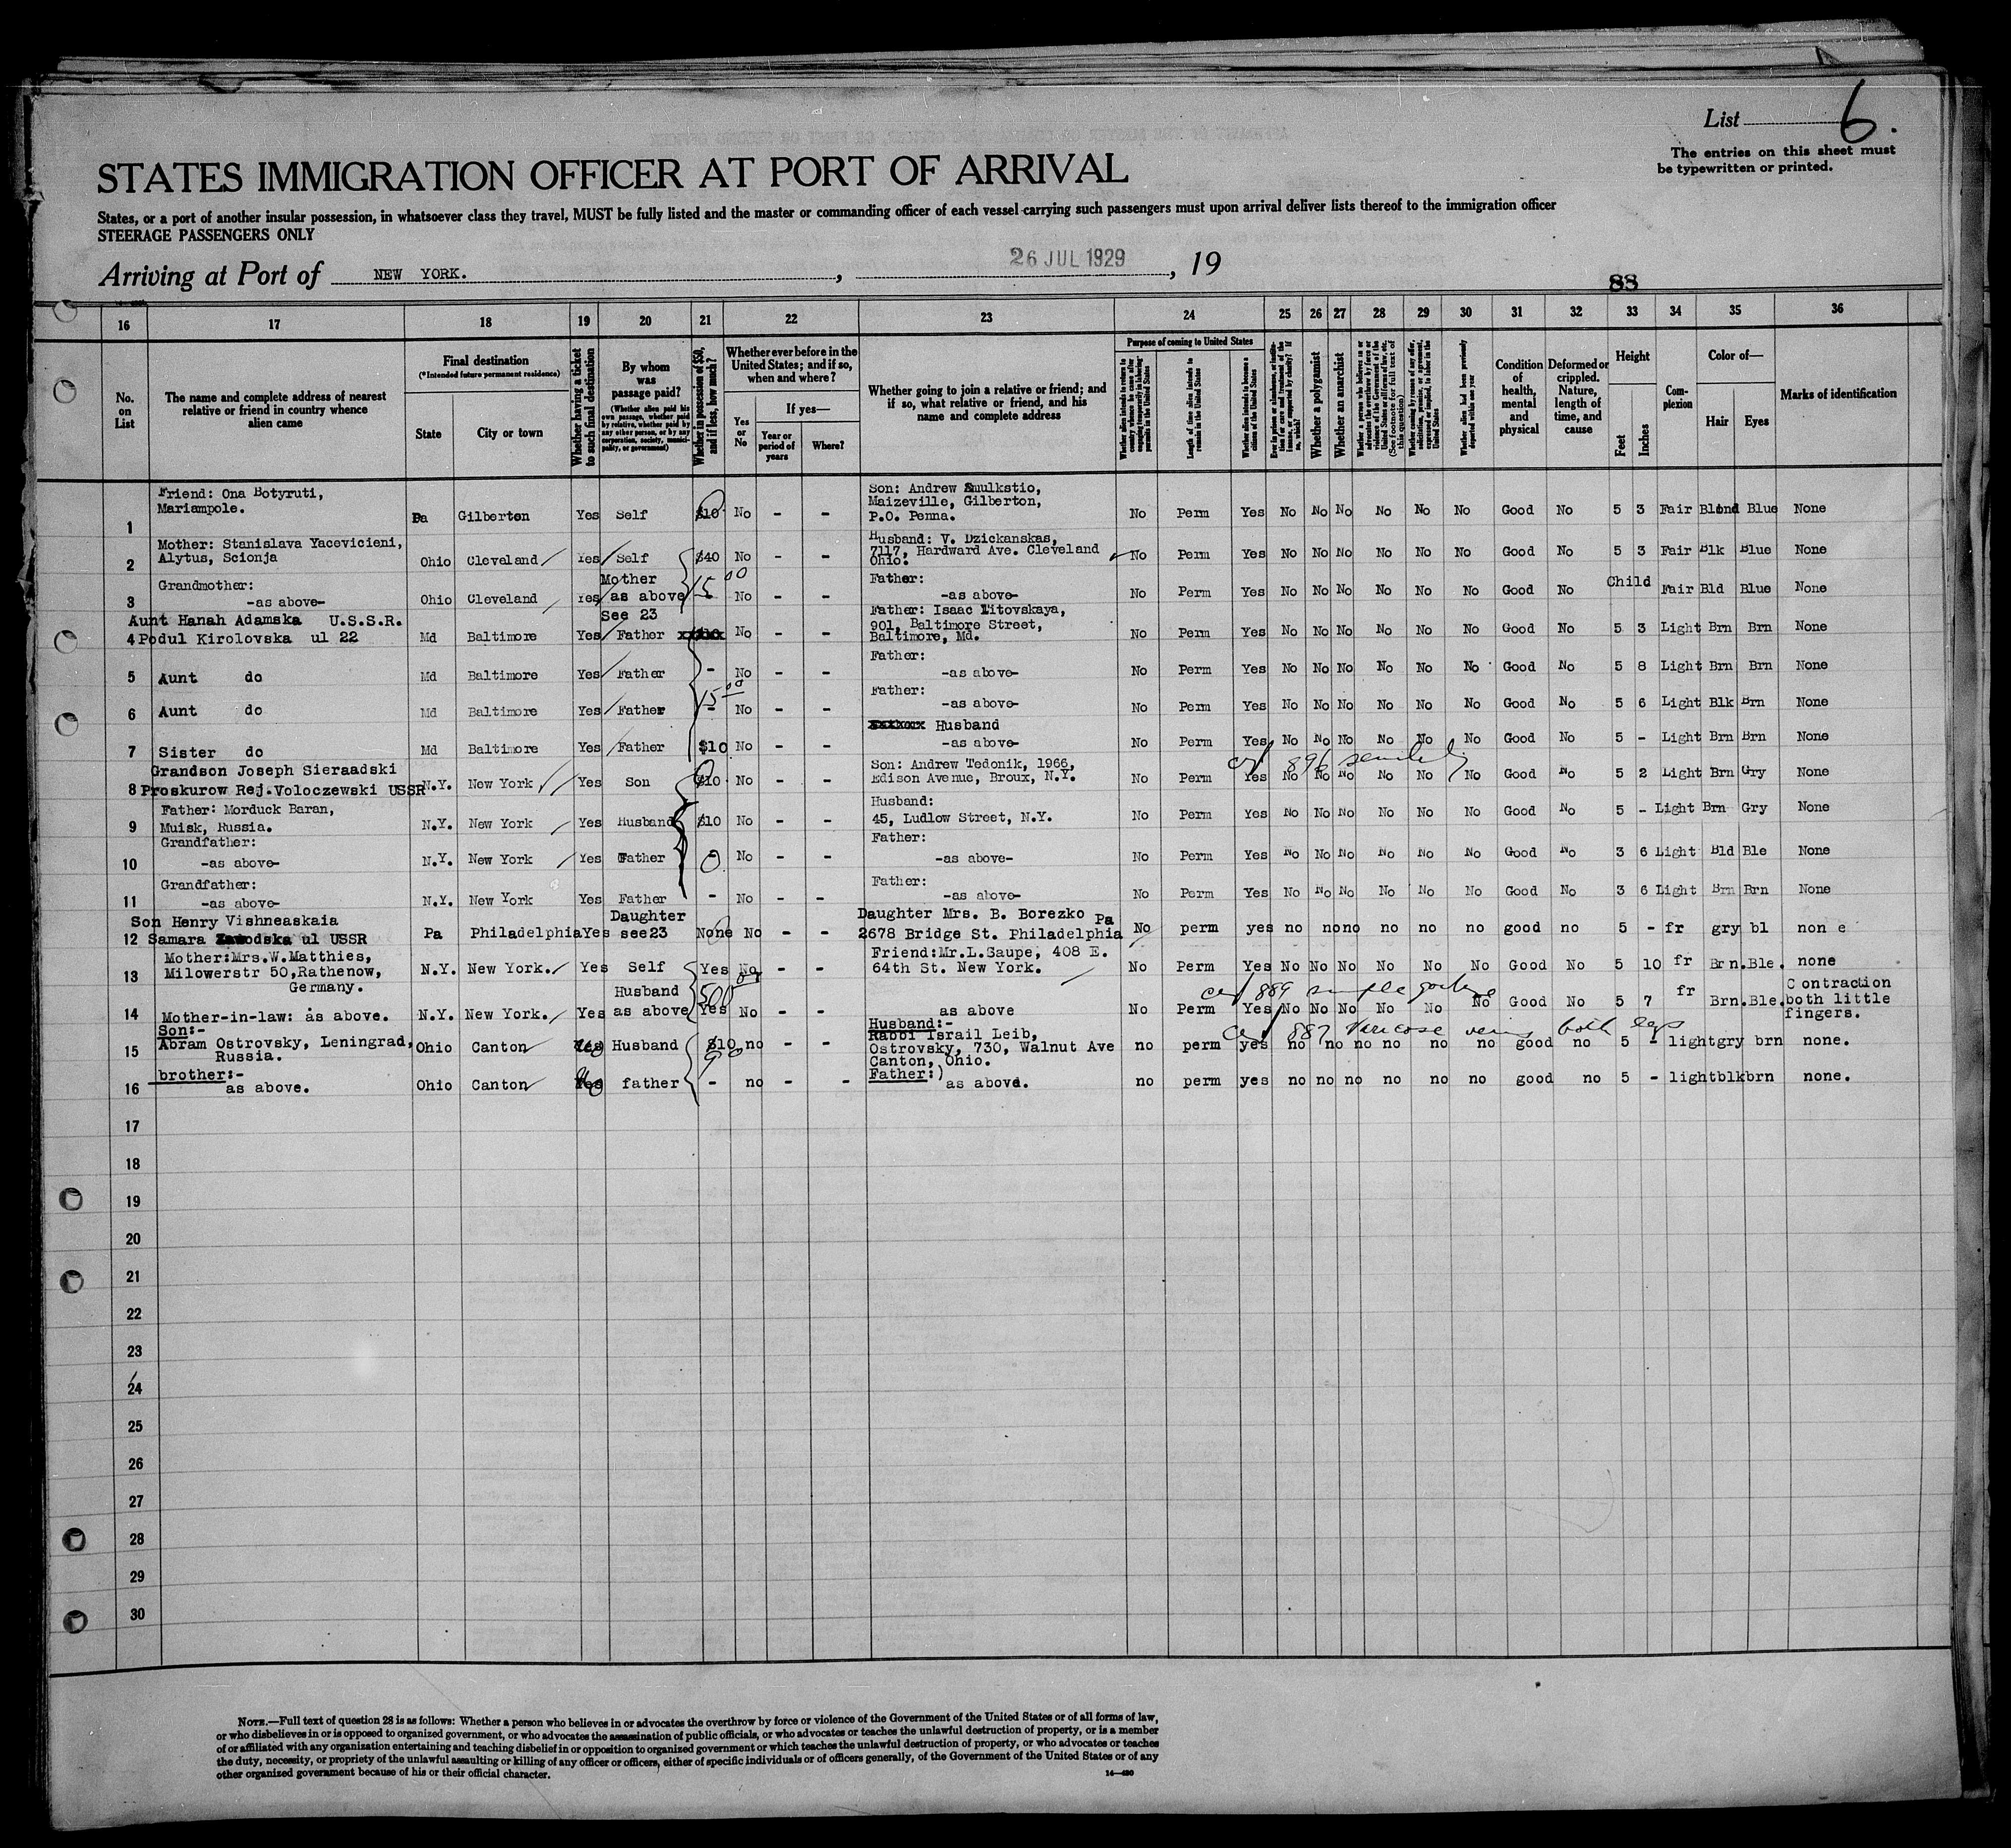 List 6.
The entries on this sheet must
be typewritten or printed.
STATES IMMIGRATION OFFICER AT PORT OF ARRIVAL
States, or a port of another insular possession, in whatsoever class they travel, MUST be fully listed and the master or commanding officer of each vessel carrying such passengers must upon arrival deliver lists thereof to the immigration officer
STEERAGE PASSENGERS ONLY
Arriving at Port of NEW YORK. , 26 JUL 1929 , 19
88
16 17 18 19 20 21 22 23 24 25 26 27 28 29 30 31 32 33 34 35 36
No. on List
The name and complete address of nearest relative or friend in country whence alien came
Final destination
(*Intended future permanent residence)
State
City or town
Whether having a ticket to such final destination
By whom was passage paid?
(Whether alien paid his own passage, whether paid by relative, whether paid by any other person, or by any corporation, society, municipality, or government)
Whether in possession of $50, and if less, how much?
Whether ever before in the United States; and if so, when and where?
Yes or No
If yes—
Year or period of years
Where?
Whether going to join a relative or friend; and if so, what relative or friend, and his name and complete address
Purpose of coming to United States
Whether alien intends to return to country whence he came after engaging temporarily in laboring pursuits in the United States
Length of time alien intends to remain in the United States
Whether alien intends to become a citizen of the United States
Whether a polygamist
Whether an anarchist
Condition of health, mental and physical
Deformed or crippled. Nature, length of time, and cause
Height
Feet
Inches
Complexion
Color of—
Hair
Eyes
Marks of identification
1 Friend: Ona Botyruti,
Mariampole. Pa Gilberton Yes Self $10 No - - Son: Andrew Smulkstio,
Maizeville, Gilberton,
P.O. Penna. No Perm Yes No No No No No No Good No 5 3 Fair Blond Blue None
2 Mother: Stanislava Yacevicieni,
Alytus, Scionja Ohio Cleveland Yes Self $40 No - - Husband: V. Dzickanskas,
7117, Hardward Ave. Cleveland
Ohio. No Perm Yes No No No No No No Good No 5 3 Fair Blk Blue None
3 Grandmother:
-as above- Ohio Cleveland Yes Mother
as above 15 00 No - - Father:
-as above- No Perm Yes No No No No No No Good No Child Fair Bld Blue None
4 Aunt Hanah Adamska U.S.S.R.
Podul Kirolovska ul 22 Md Baltimore Yes See 23
Father No - - Father: Isaac Litovskaya,
901, Baltimore Street,
Baltimore, Md. No Perm Yes No No No No No No Good No 5 3 Light Brn Brn None
5 Aunt do Md Baltimore Yes Father - No - - Father:
-as above- No Perm Yes No No No No No No Good No 5 8 Light Brn Brn None
6 Aunt do Md Baltimore Yes Father 15 00 - No - - Father:
-as above- No Perm Yes No No No No No No Good No 5 6 Light Blk Brn None
7 Sister do Md Baltimore Yes Father $10 No - - Husband
-as above- No Perm Yes No No No No No No Good No 5 - Light Brn Brn None
cert 896 senility
8 Grandson Joseph Sieraadski
Proskurow Rej.Voloczewski USSR N.Y. New York Yes Son $10 No - - Son: Andrew Tedonik, 1966,
Edison Avenue, Broux, N.Y. No Perm Yes No No No No No No Good No 5 2 Light Brn Gry None
9 Father: Morduck Baran,
Muisk, Russia. N.Y. New York Yes Husband $10 No - - Husband:
45, Ludlow Street, N.Y. No Perm Yes No No No No No No Good No 5 - Light Brn Gry None
10 Grandfather:
-as above- N.Y. New York Yes Father 0 No - - Father:
-as above- No Perm Yes No No No No No No Good No 3 6 Light Bld Ble None
11 Grandfather:
-as above- N.Y. New York Yes Father - No - - Father:
-as above- No Perm Yes No No No No No No Good No 3 6 Light Brn Brn None
12 Son Henry Vishneaskaia
Samara Zawodska ul USSR Pa Philadelphia Yes Daughter
see23 None No - - Daughter Mrs. B. Borezko Pa
2678 Bridge St. Philadelphia No perm yes no no no no no no good no 5 - fr gry bl none
13 Mother:Mrs.W.Matthies,
Milowerstr 50,Rathenow,
Germany. N.Y. New York. Yes Self Yes No - - Friend:Mr.L.Saupe, 408 E.
64th St. New York. No Perm Yes No No No No No No Good No 5 10 fr Brn. Ble. none
cert 889 simple goitre
14 Mother-in-law: as above. N.Y. New York. Yes Husband
as above 500 00 Yes No - - as above No Perm Yes No No No No No No Good No 5 7 fr Brn. Ble. Contraction
both little
fingers.
cert 887 Varicose veins both legs
15 Son:-
Abram Ostrovsky, Leningrad,
Russia. Ohio Canton Husband $10 no - - Husband:-
Rabbi Israil Leib,
Ostrovsky, 730, Walnut Ave
Canton, Ohio. no perm yes no no no no no no good no 5 - light gry brn none.
16 brother:-
as above. Ohio Canton father - no - - Father:)
as above. no perm yes no no no no no no good no 5 - light blk brn none.
17
18
19
20
21
22
23
24
25
26
27
28
29
30
NOTE.—Full text of question 28 is as follows: Whether a person who believes in or advocates the overthrow by force or violence of the Government of the United States or of all forms of law,
or who disbelieves in or is opposed to organized government, or who advocates the assassination of public officials, or who advocates or teaches the unlawful destruction of property, or is a member
of or affiliated with any organization entertaining and teaching disbelief in or opposition to organized government or which teaches the unlawful destruction of property, or who advocates or teaches
the duty, necessity, or propriety of the unlawful assaulting or killing of any officer or officers, either of specific individuals or of officers generally, of the Government of the United States or of any
other organized government because of his or their official character.
14—430